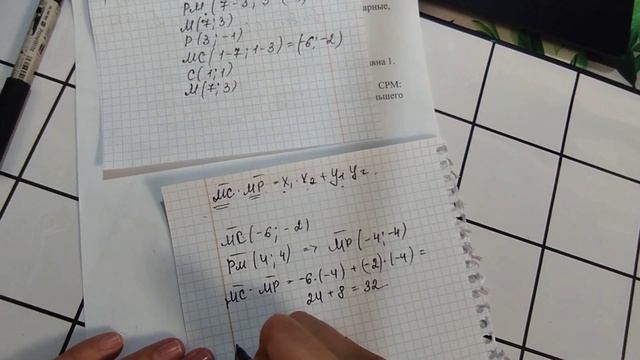 M(7;3)
P(3;-1)
MC(1-7;1-3)=(-6;-2)
C(1;1)
M(7;3)
арные,
вна 1.
CPM:
ьшего
MC·MP=x₁·x₂+y₁y₂.
MC(-6;-2)
PM(4;4)=>MP(-4;-4)
MC·MP=-6·(-4)+(-2)·(-4)=
24+8=32